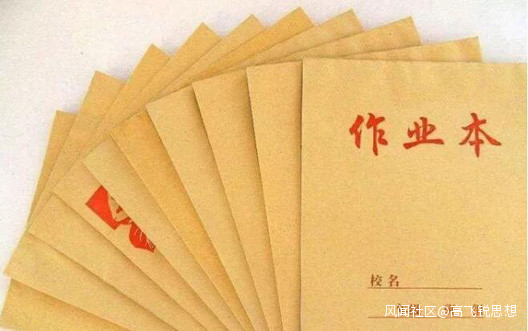 作业本
校名
风闻社区@高飞锐思想